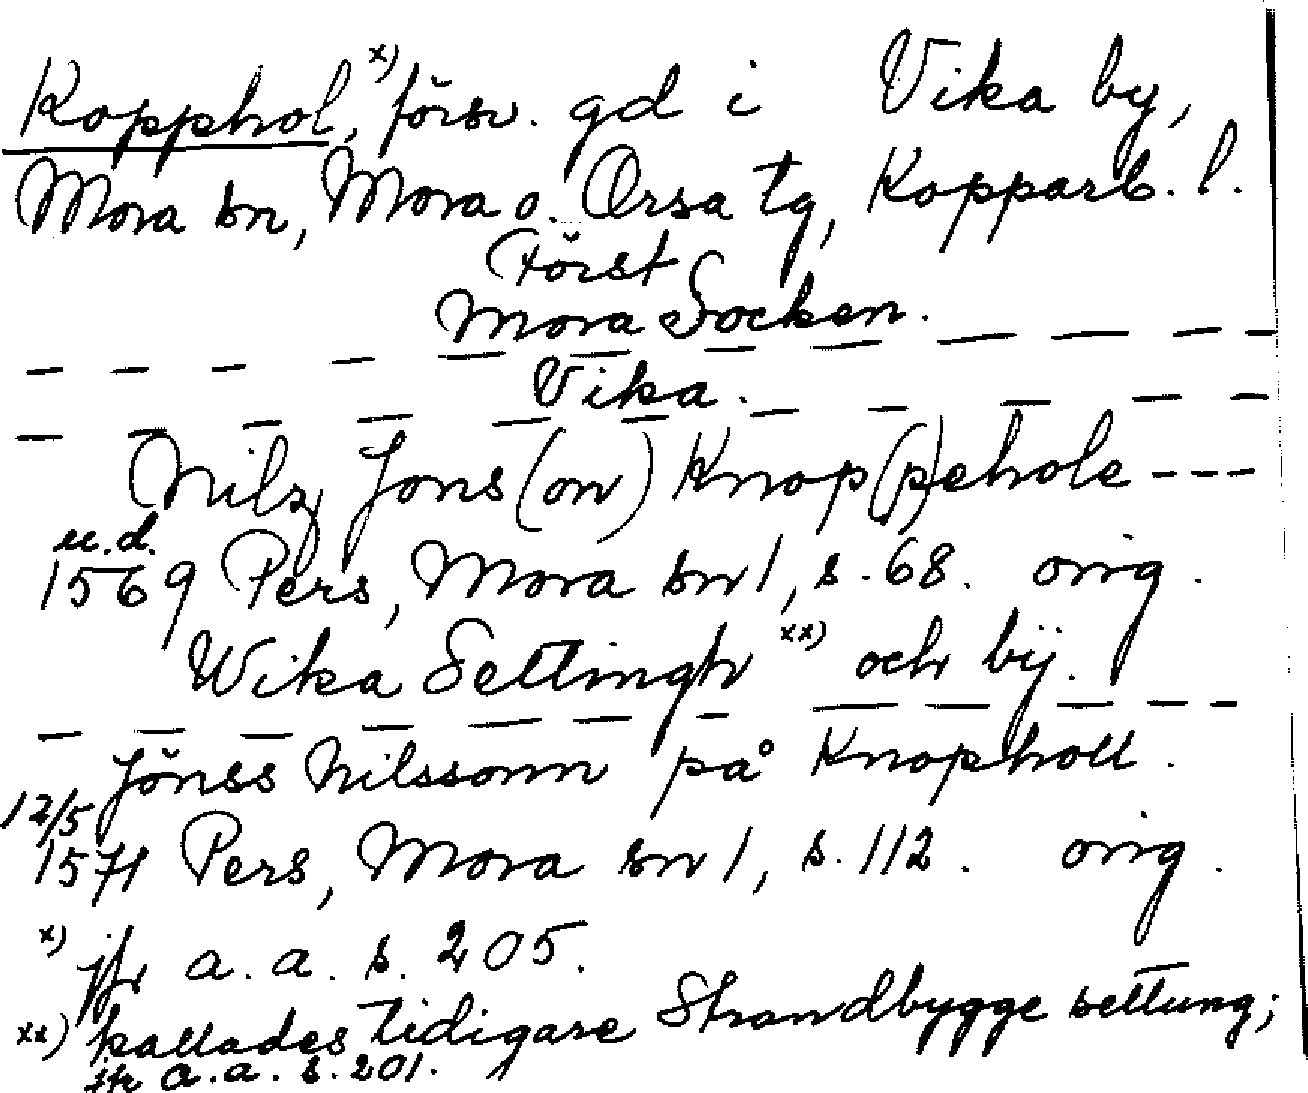 Kopphol, x) försv. gd i Vika by,
Mora sn, Mora o. Orsa tg, Kopparb. l.
Först
Mora Socken.
— — — — — — — — — — — —
Vika.
— — — — — — — — — — —
Nilz Jons(on) Knop(p)ehole ---
u.d.
1569 Pers, Mora sn 1, s. 68. orig.
Wika Settingh xx) och bÿ.
— — — — — — — — — — —
Jönss Nilssonn på Knopholl.
12/5
1571 Pers, Mora sn 1, s. 112. orig.
x) jfr a.a. s. 205.
xx) kallades tidigare Strandbygge settung;
jfr a.a. s. 201.